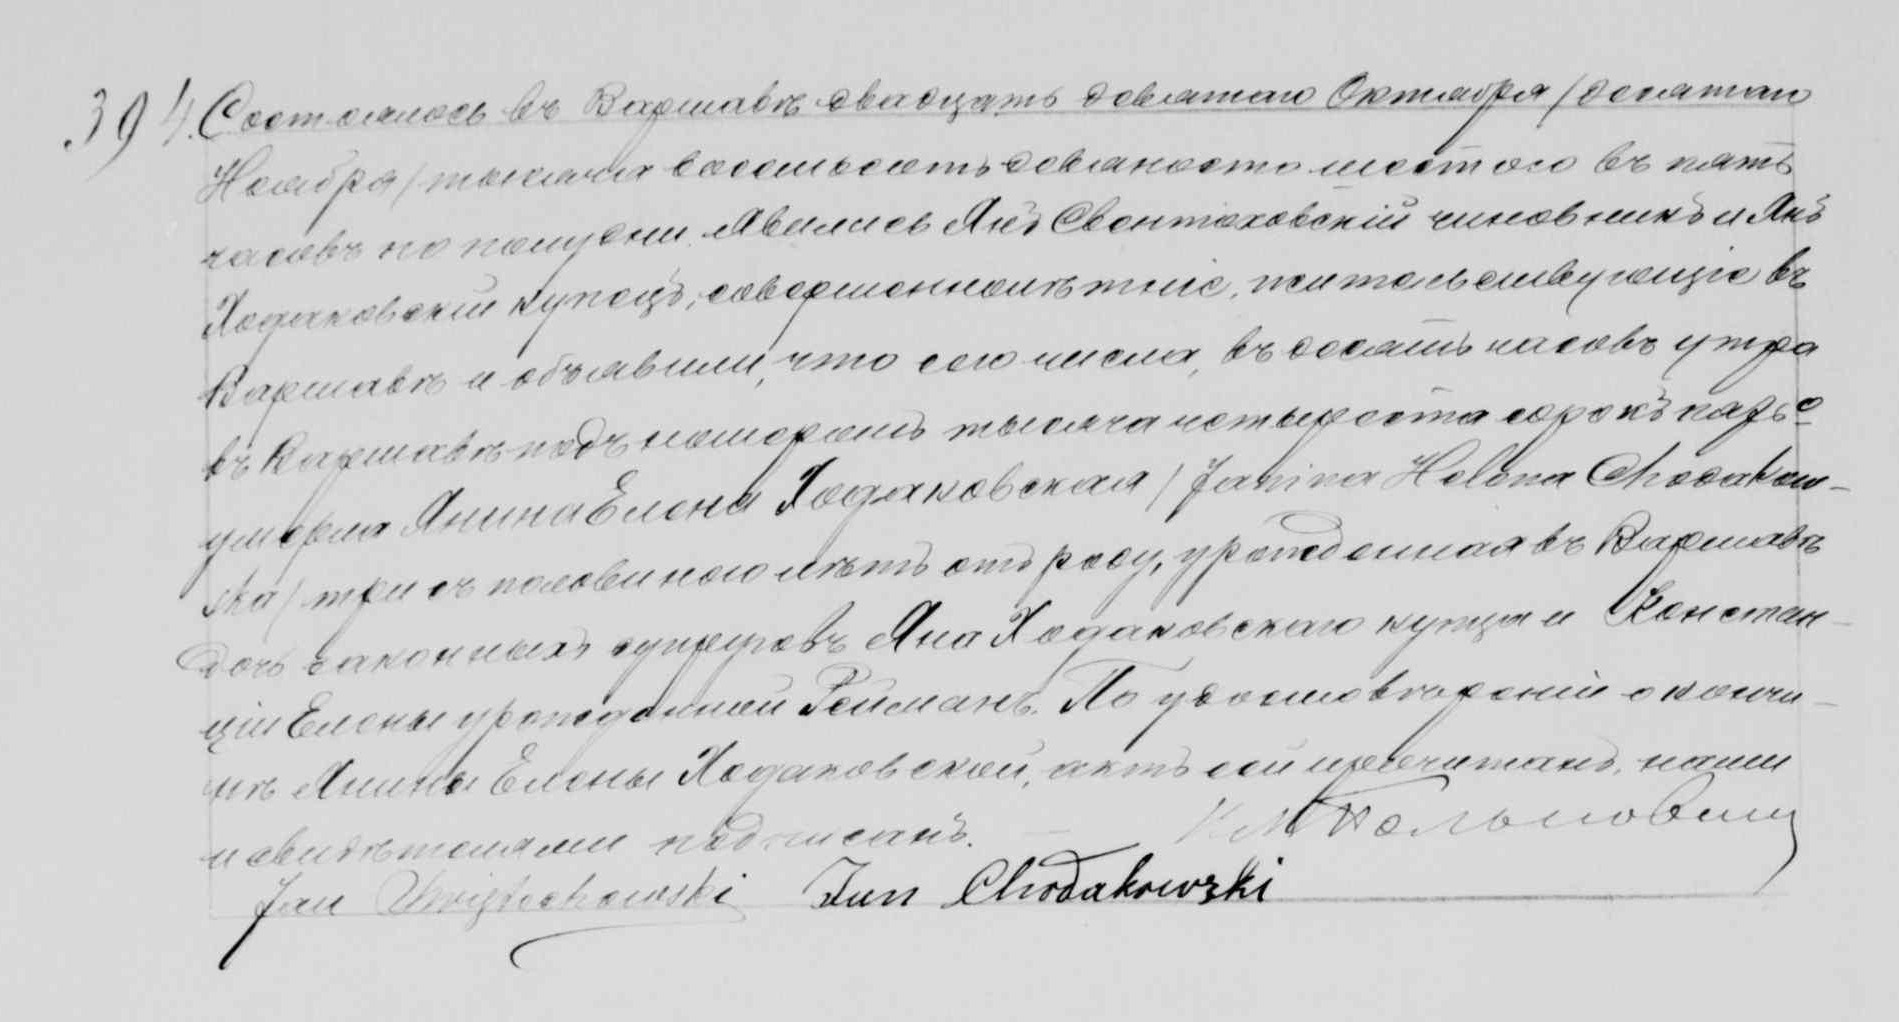 394. Состоялось въ Варшавѣ двадцать девятаго Октября / десятаго
Ноября / тысяча восемьсотъ девяносто шестого въ пять
часовъ по полудни. Явились Янъ Свентоховскій чиновникъ и Янъ
Ходаковскій купецъ, совершеннолѣтніе, жительствующіе въ
Варшавѣ и объявили, что сего числа, въ десять часовъ утра
въ Варшавѣ подъ номеромъ тысяча четыреста сорокъ
умерла Янина Елена Ходаковская / Janina Helena Chodakow-
ska / три съ половиною лѣтъ отъ роду, урожденная въ Варшавѣ
дочь законныхъ супруговъ Яна Ходаковскаго купца и Констан-
ціи Елены урожденной Рейманъ. По удостовѣреніи о кончи-
нѣ Янины Елены Ходаковской, актъ сей прочитанъ, нами
и свидѣтелями подписанъ. —
Jan Świętochowski Jan Chodakowski